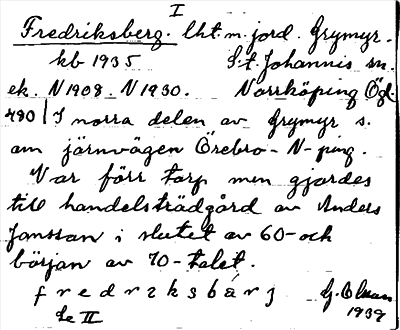 I
Fredriksberg. lht. m. jord. Grymyr.
kb 1935 S:t Johannis sn.
ek. N 1908 N 1930. Norrköping Ög.
490 I norra delen av Grymyr s.
om järnvägen Örebro - N-ping.
Var förr torp men gjordes
till handelsträdgård av Anders
Jonsson i slutet av 60- och
början av 70-talet.
fredrɪksbárj G. Olsson
1939
Se II